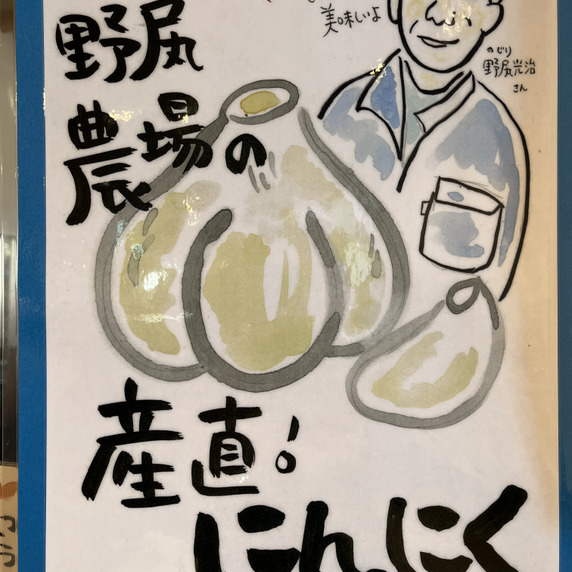 美味しいよ
野尻
農場の
のじり
野尻岩治
さん
産直!
にんにく